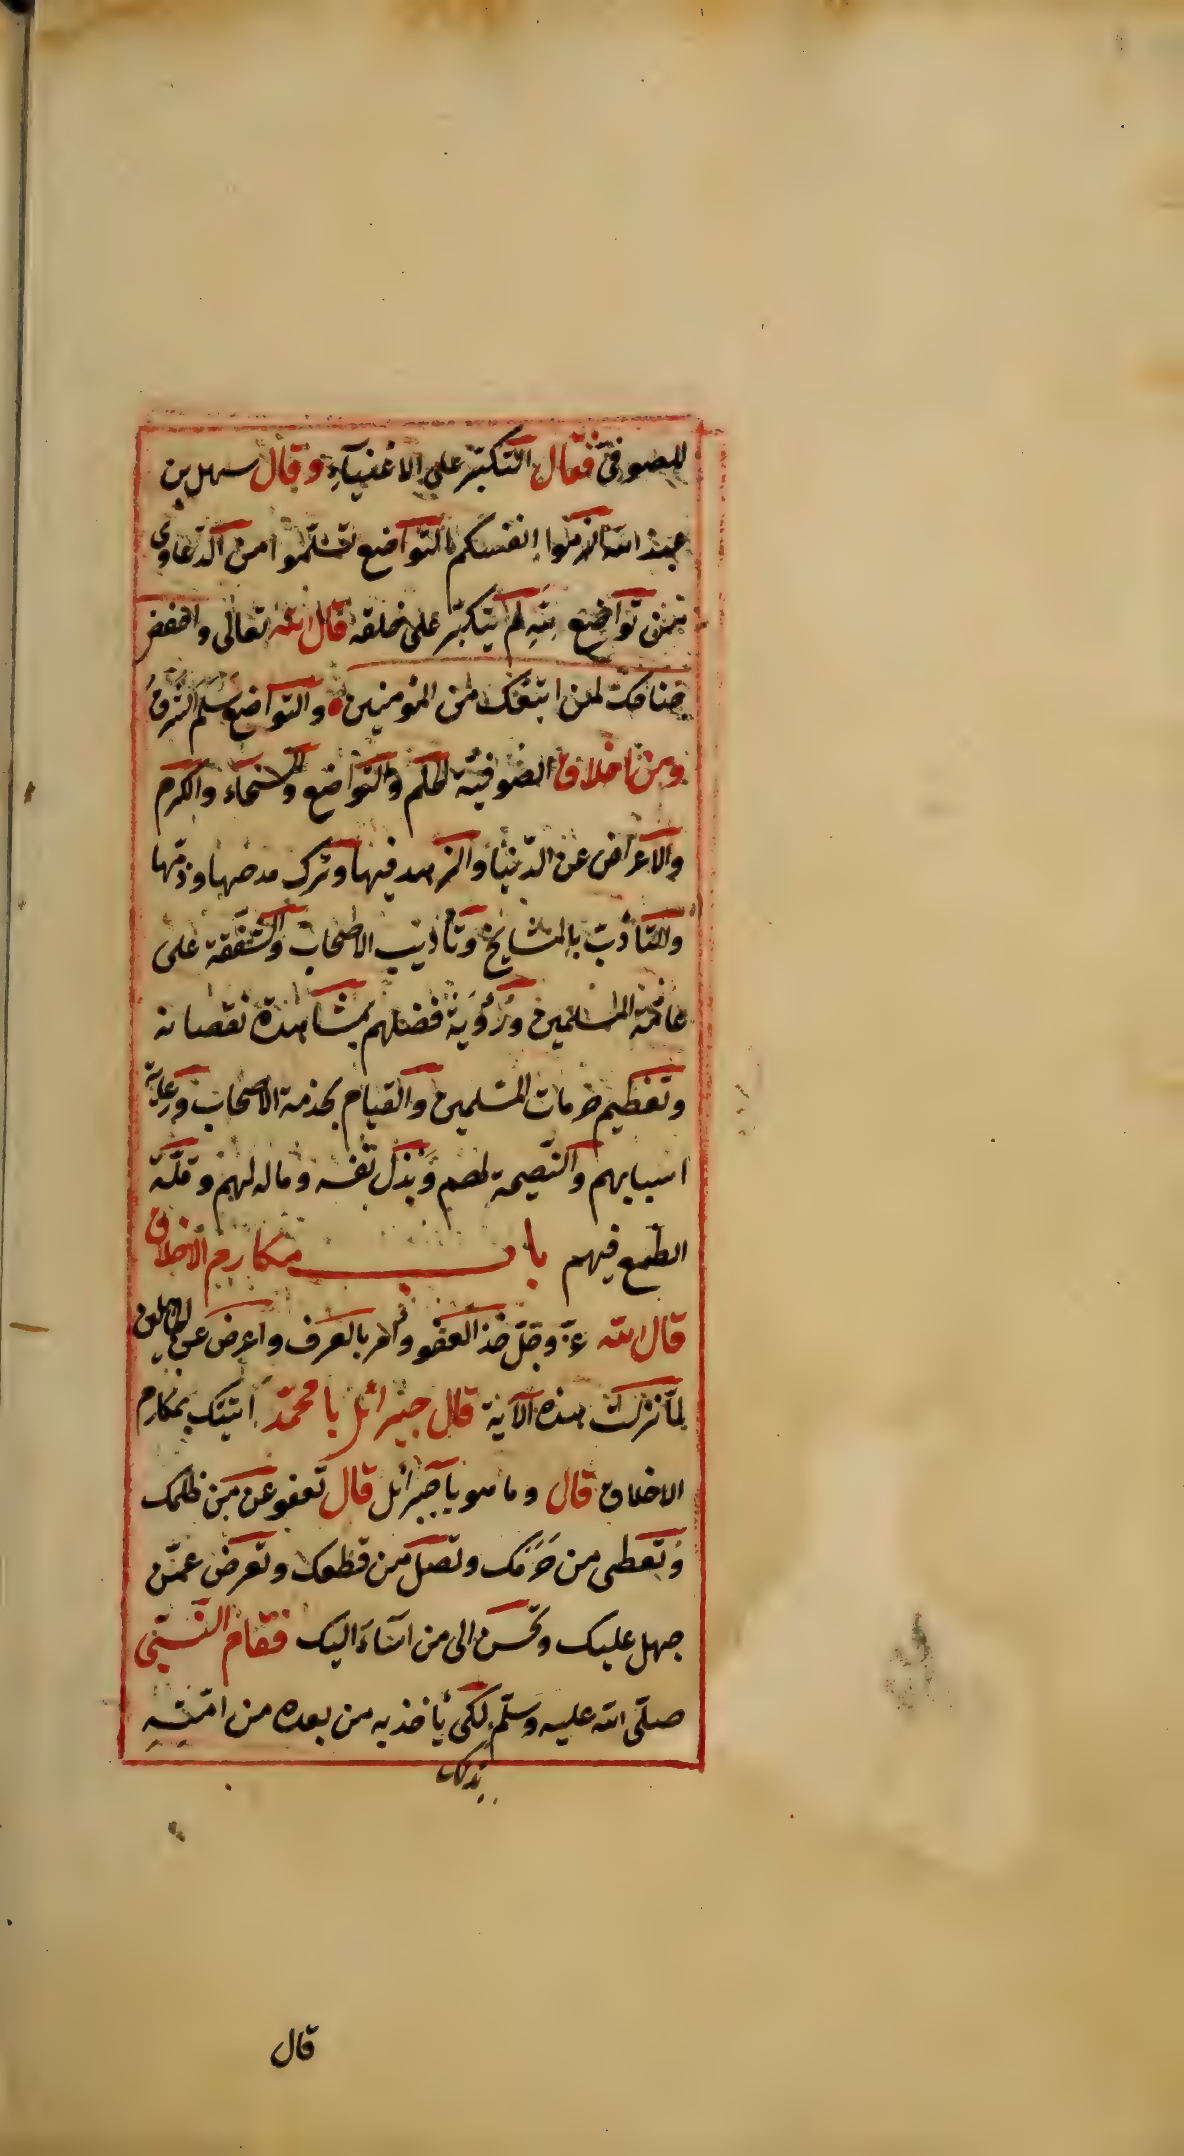 للصوفىّ فقال التكبّر على الاغنيآء وقال سهل بن
عبد الله الزموا انفسكم بالتواضع تسلموا من الدعاوى
فمن تواضع لله لم يتكبّر على خلقه قال الله تعالى واخفض
جناحك لمن اتبعك من المؤمنين والتواضع سلّم الشرف
ومن اخلاق الصوفيّة الحلم والتواضع والسخاء والكرم
والاعراض عن الدّنيا والزهد فيها وترك مدحها وذمّها
والتأدّب بالمشايخ وتأديب الاصحاب والشفقة على
عامّة المسلمين ورُؤية فضلهم بمشاهدة نقصانه
وتعظيم حرمات المسلمين والقيام بخدمة الاصحاب ورعاية
اسبابهم والنّصيحة لهم وبذل نفسه وماله لهم وقلّة
الطمع فيهم باب مكارم الاخلاق
قال الله عزّ وجلّ خذ العفو وأمر بالعرف واعرض عن الجاهلين
لمّا نزلت هذه الآية قال جبرائل يا محمّد أتيتك بمكارم
الاخلاق قال وما هو يا جبرائل قال تعفو عن من ظلمك
وتعطى من حرمك وتصل من قطعك وتعرض عمّن
جهل عليك وتحسن الى من اسآء اليك فقام النّبىّ
صلّى الله عليه وسلّم لكى يأخذ به من بعده من امّته
بذلك
قال